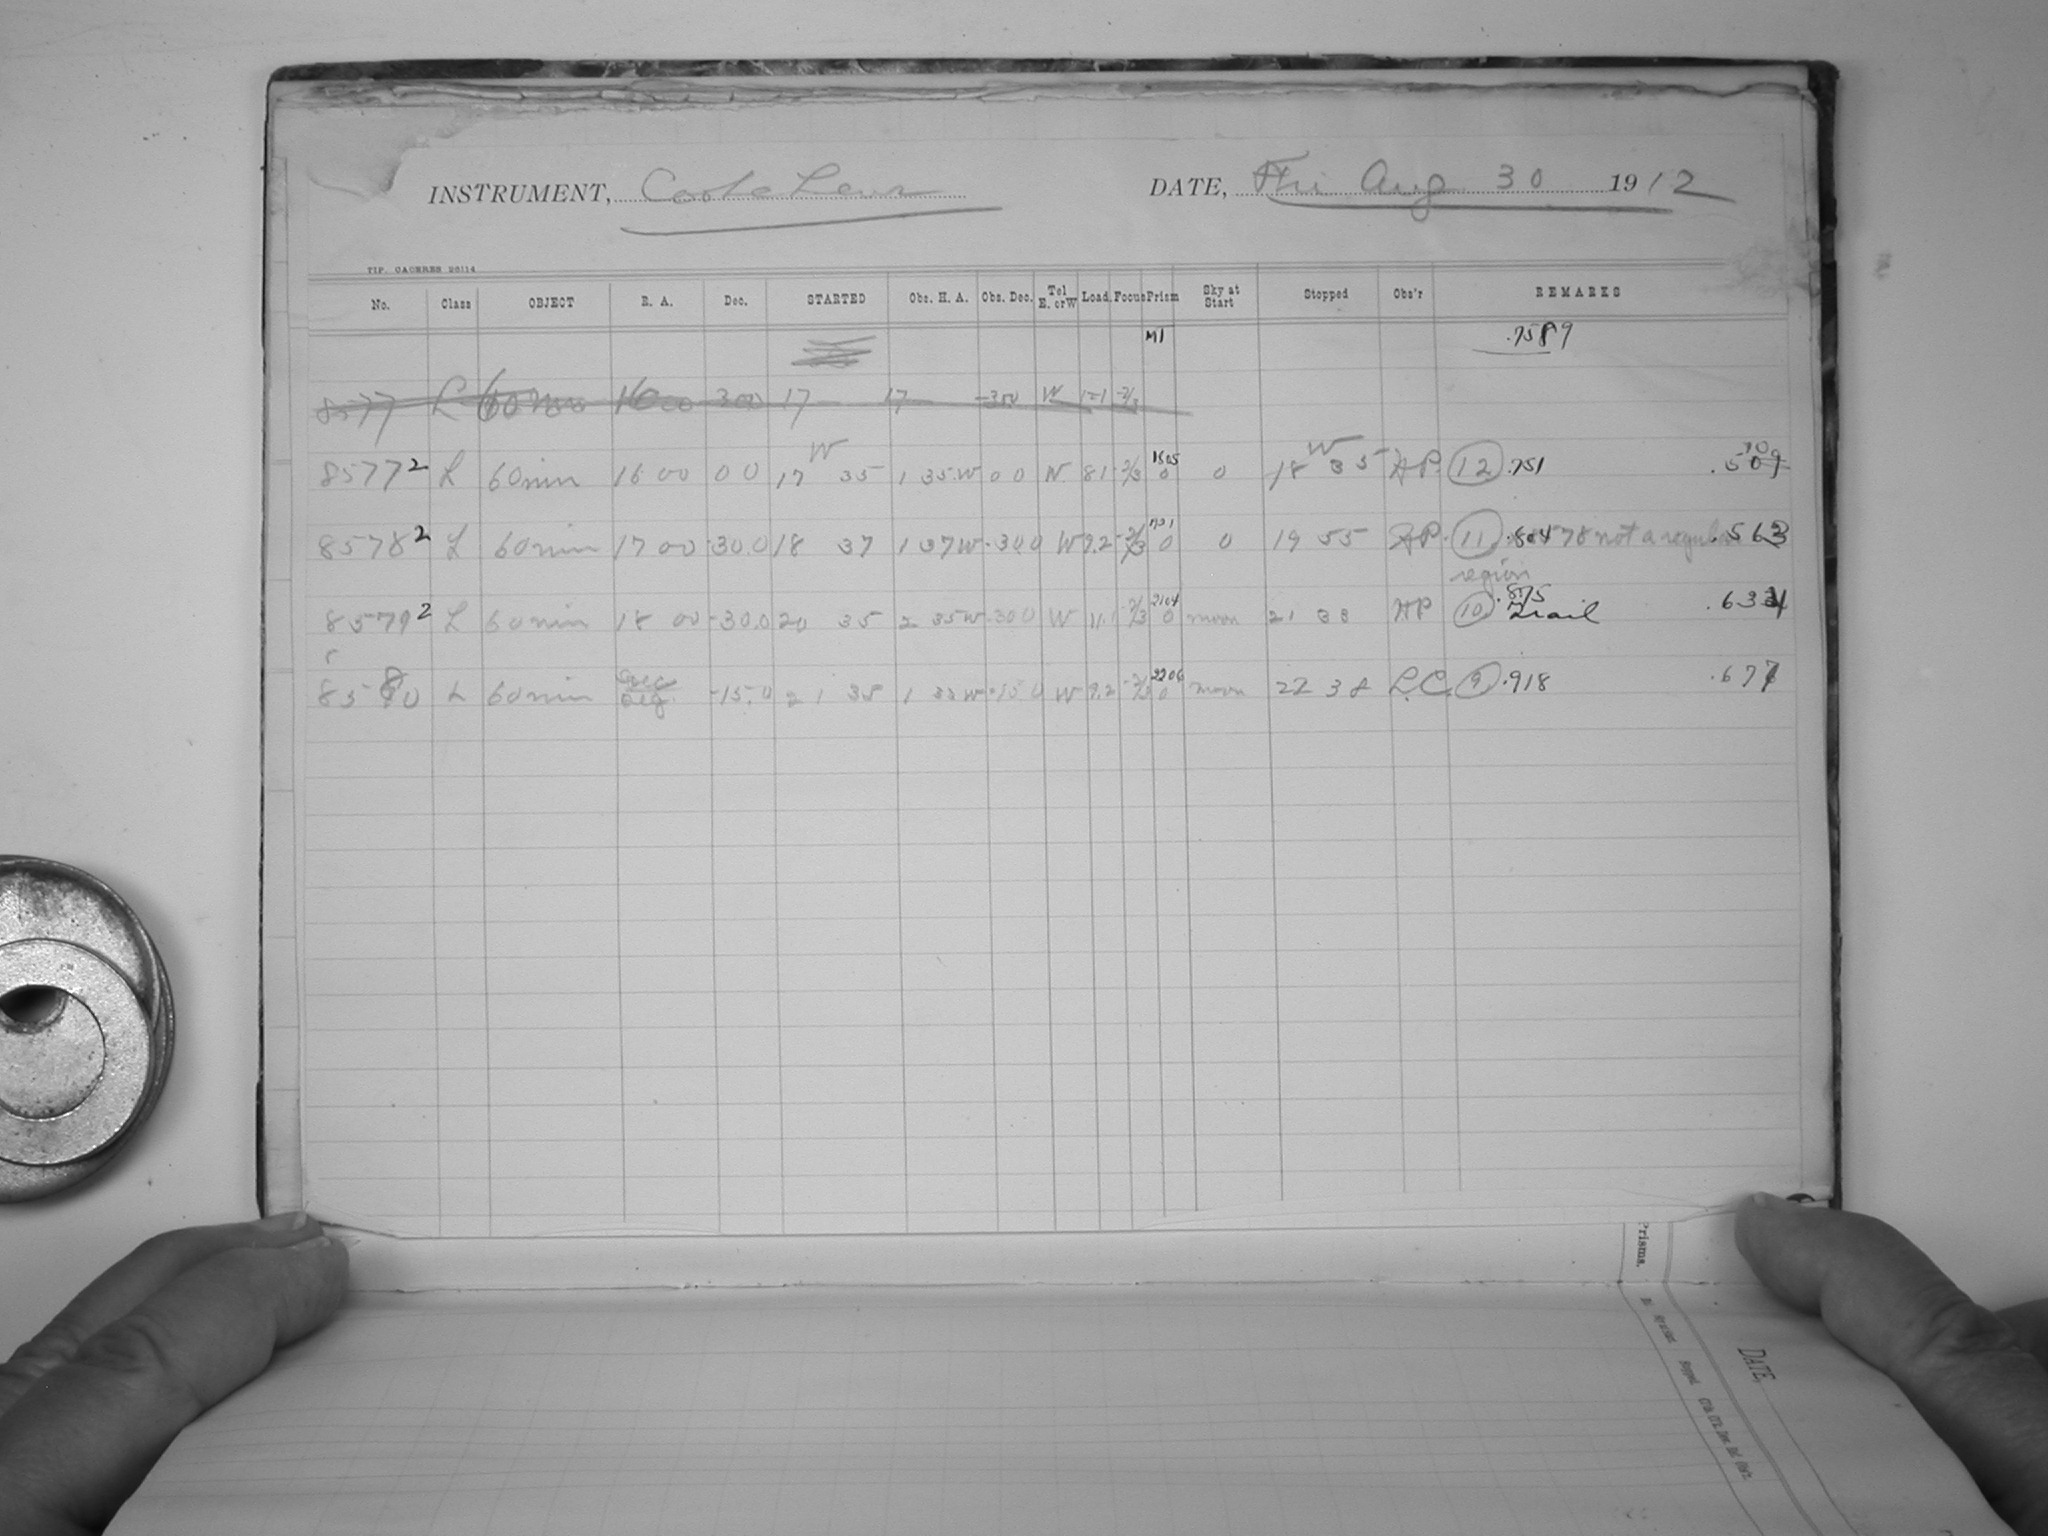 INSTRUMENT, Cooke Lens DATE, Fri Aug 30 1912
TIP. CACERES 26114
No. Class OBJECT R. A. Dec. STARTED Obs. H. A. Obs. Dec. Tel E. or W Load. Focus Prism Sky at Start Stopped Obs'r REMARKS
M1 .7589
8577 L 60 min 16 00 -30.0 17 17 -30.0 W -2/3
W W 1605 10
8577 2 L 60 min 16 00 0 0 17 35 1 35 W 0 0 W 8.1 -2/3 0 0 18 35 AP. 12 .751 .509
1701
8578 2 L 60 min 17 00 -30.0 18 37 1 37 W -30.0 W 9.2 -2/3 0 0 19 55 AP. 11 .804 78 not a regular .563
region
2104 .875
8579 2 L 60 min 18 00 -30.0 20 35 2 35 W -30.0 W 11.1 -2/3 0 moon 21 38 AP 10 Trail .634
2206
8580 L 60 min -15.0 21 35 1 35 W -15.0 W 9.2 -2/3 0 moon 22 38 L.C. 9 .918 .677
Prisms.
DATE,
Stopped.